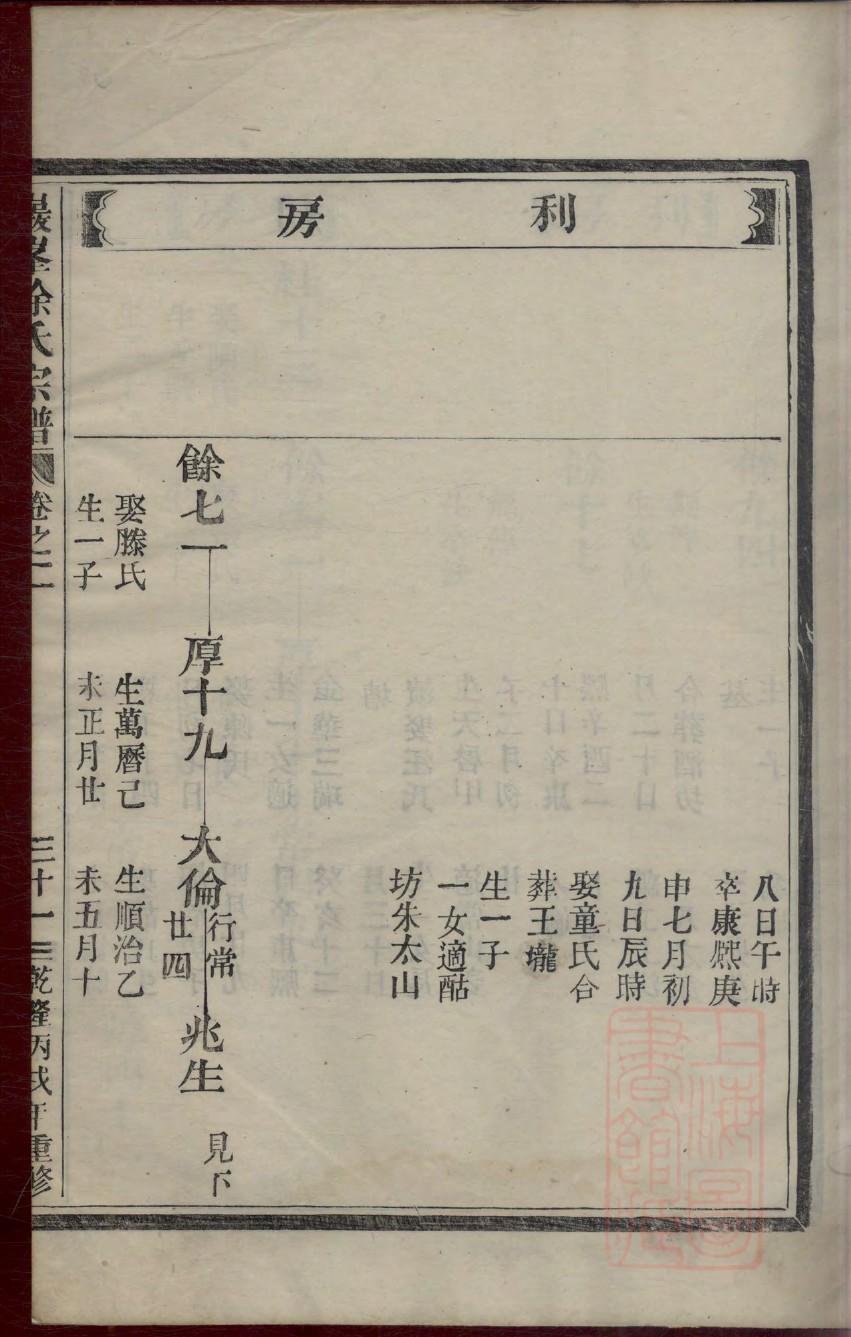 利房
八日午時
卒康熈庚
申七月初
九日辰時
娶童氏合
葬王壠
生一子
一女適酤
坊朱太山
餘七一
厚十九
大倫
行常
廿四
兆生
見下
娶滕氏
生一子
生萬曆己
未正月廿
生順治乙
未五月十
巖峯徐氏宗譜
卷之二
三十一
乾隆丙戌年重修
上海圖書館藏